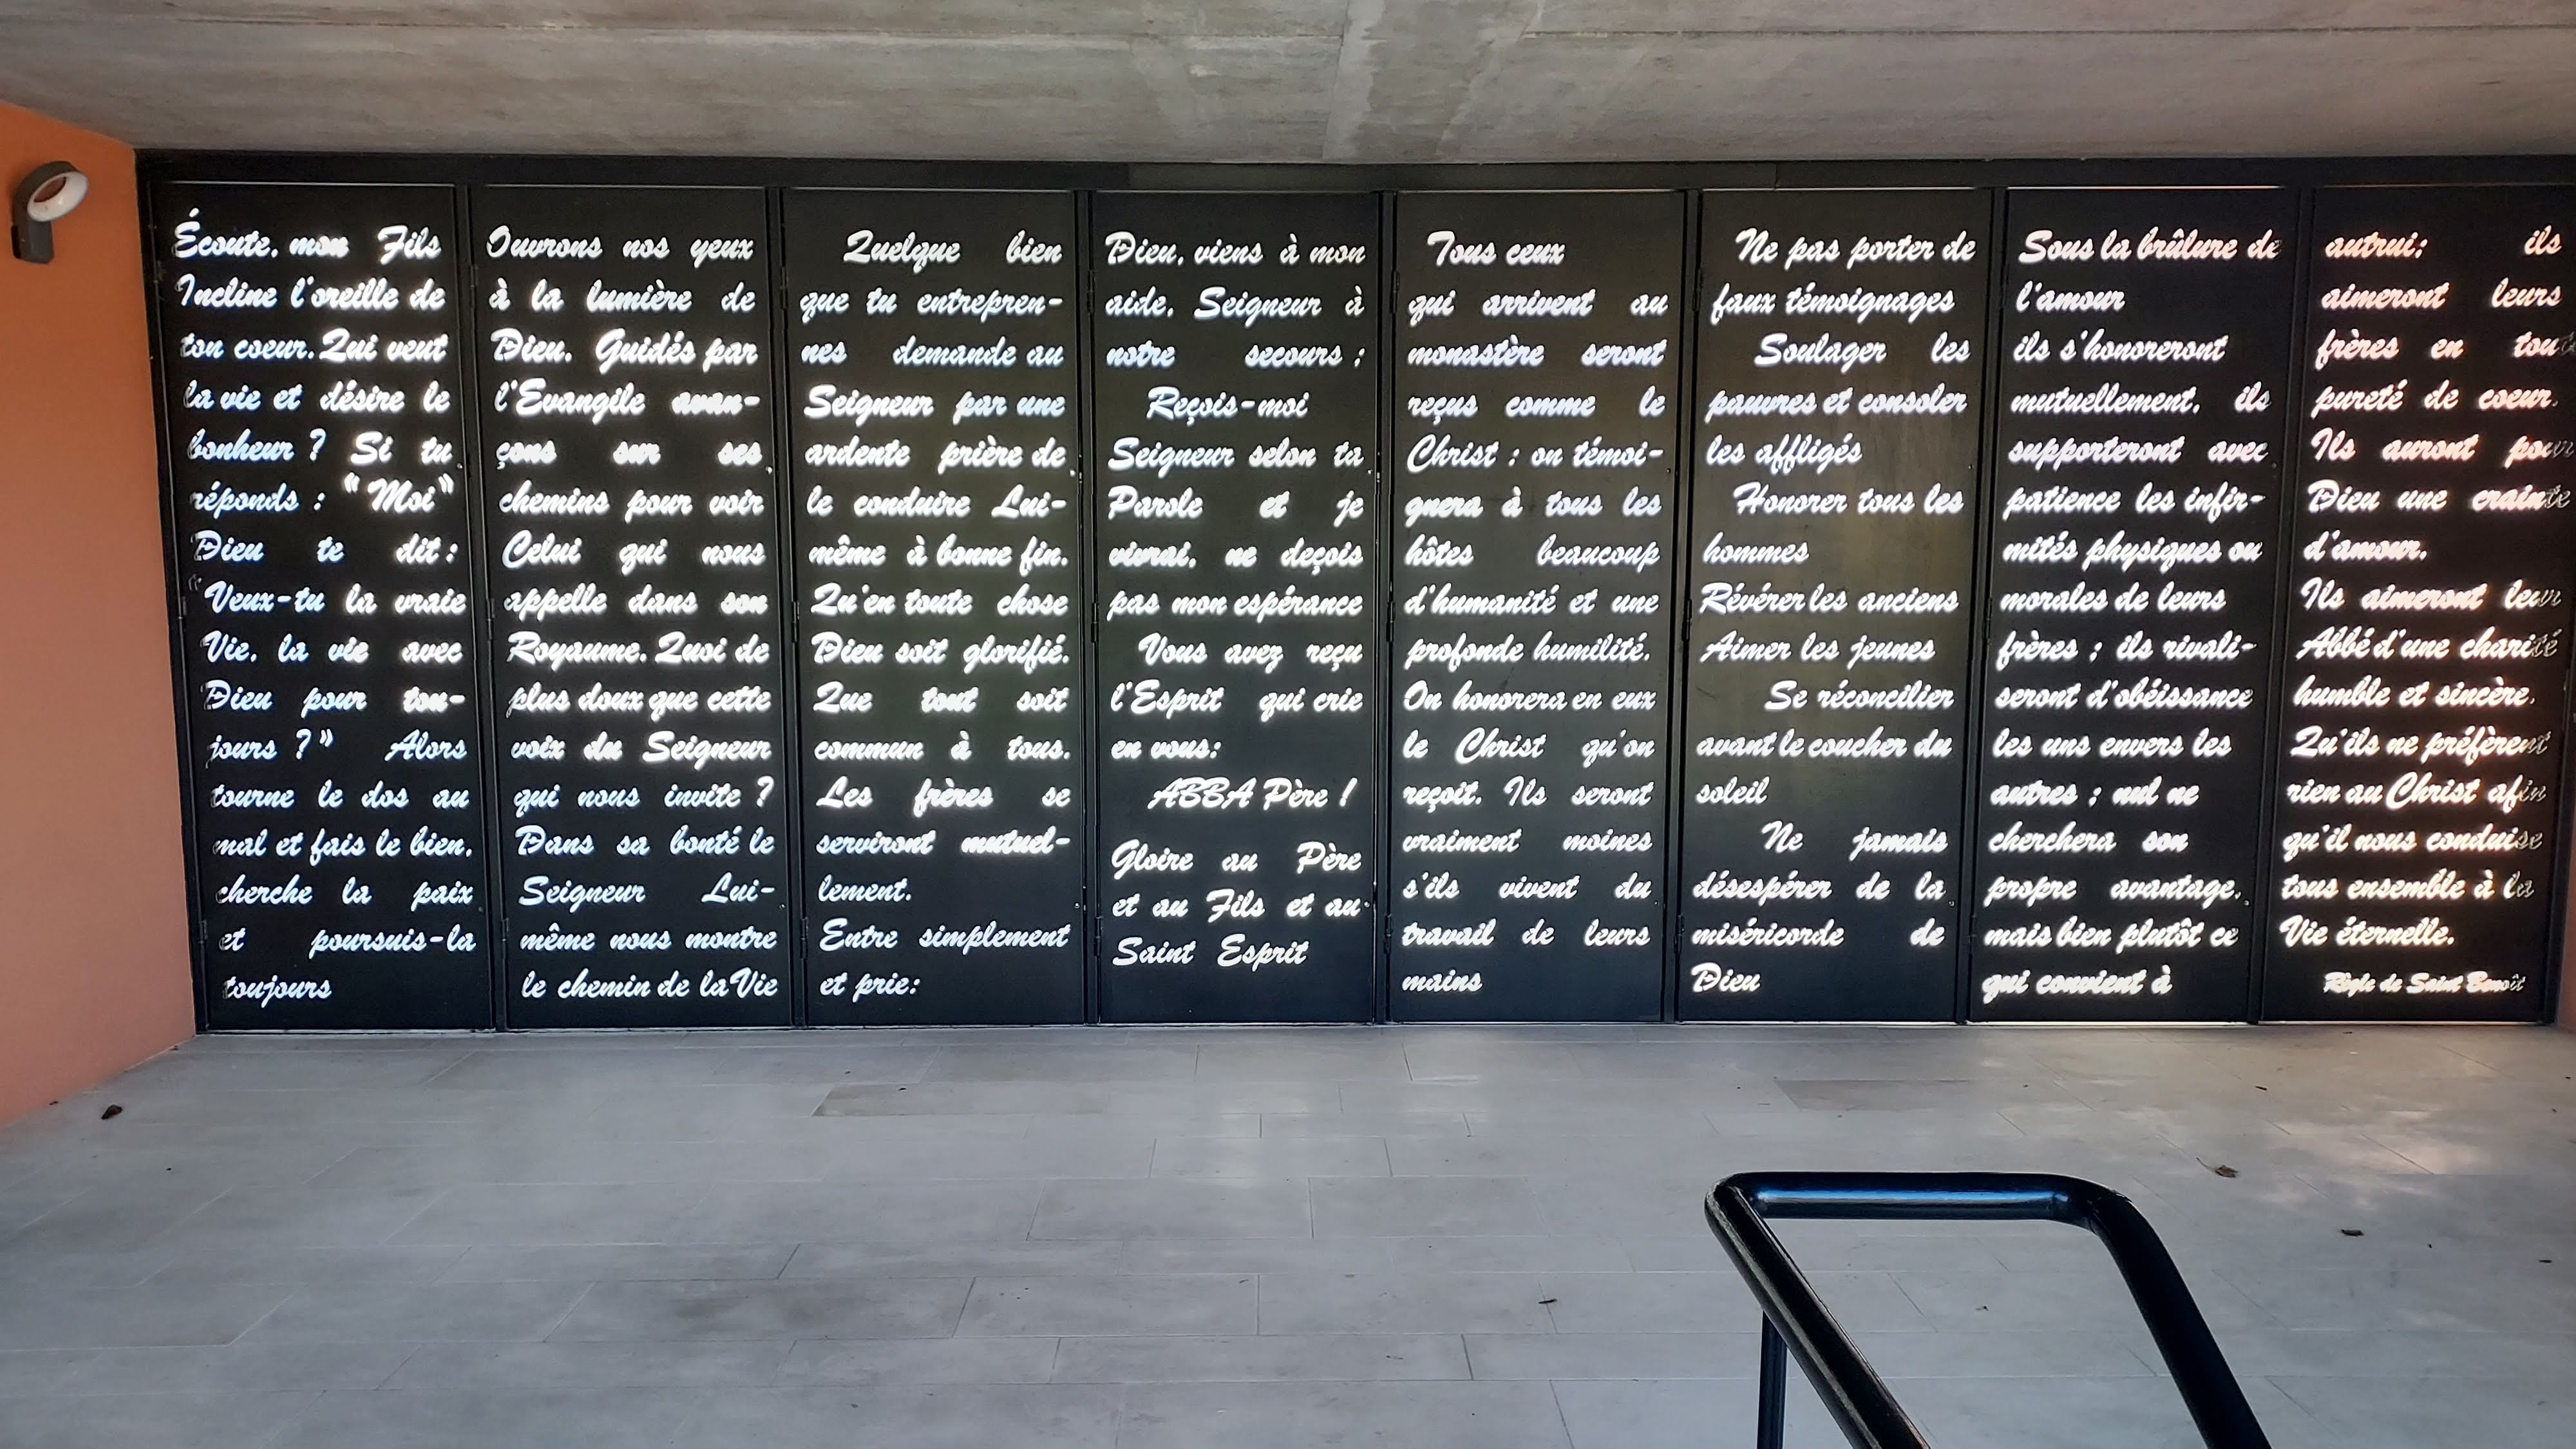 Écoute, mon Fils
Incline l'oreille de
ton coeur. Qui veut
la vie et désire le
bonheur ? Si tu
réponds : "Moi"
Dieu te dit :
"Veux-tu la vraie
Vie, la vie avec
Dieu pour tou-
jours ?" Alors
tourne le dos au
mal et fais le bien,
cherche la paix
et poursuis-la
toujours
Ouvrons nos yeux
à la lumière de
Dieu. Guidés par
l'Evangile avan-
çons sur ses
chemins pour voir
Celui qui nous
appelle dans son
Royaume. Quoi de
plus doux que cette
voix du Seigneur
qui nous invite ?
Dans sa bonté le
Seigneur Lui-
même nous montre
le chemin de la Vie
Quelque bien
que tu entrepren-
nes demande au
Seigneur par une
ardente prière de
le conduire Lui-
même à bonne fin.
Qu'en toute chose
Dieu soit glorifié.
Que tout soit
commun à tous.
Les frères se
serviront mutuel-
lement.
Entre simplement
et prie:
Dieu, viens à mon
aide, Seigneur à
notre secours ;
Reçois-moi
Seigneur selon ta
Parole et je
vivrai, ne deçois
pas mon espérance
Vous avez reçu
l'Esprit qui crie
en vous:
ABBA Père !
Gloire au Père
et au Fils et au
Saint Esprit
Tous ceux
qui arrivent au
monastère seront
reçus comme le
Christ : on témoi-
gnera à tous les
hôtes beaucoup
d'humanité et une
profonde humilité.
On honorera en eux
le Christ qu'on
reçoit. Ils seront
vraiment moines
s'ils vivent du
travail de leurs
mains
Ne pas porter de
faux témoignages
Soulager les
pauvres et consoler
les affligés
Honorer tous les
hommes
Révérer les anciens
Aimer les jeunes
Se réconcilier
avant le coucher du
soleil
Ne jamais
désespérer de la
miséricorde de
Dieu
Sous la brûlure de
l'amour
ils s'honoreront
mutuellement, ils
supporteront avec
patience les infir-
mités physiques ou
morales de leurs
frères ; ils rivali-
seront d'obéissance
les uns envers les
autres ; nul ne
cherchera son
propre avantage,
mais bien plutôt ce
qui convient à
autrui; ils
aimeront leurs
frères en toute
pureté de coeur.
Ils auront pour
Dieu une crainte
d'amour.
Ils aimeront leur
Abbé d'une charité
humble et sincère.
Qu'ils ne préfèrent
rien au Christ afin
qu'il nous conduise
tous ensemble à la
Vie éternelle.
Règle de Saint Benoît